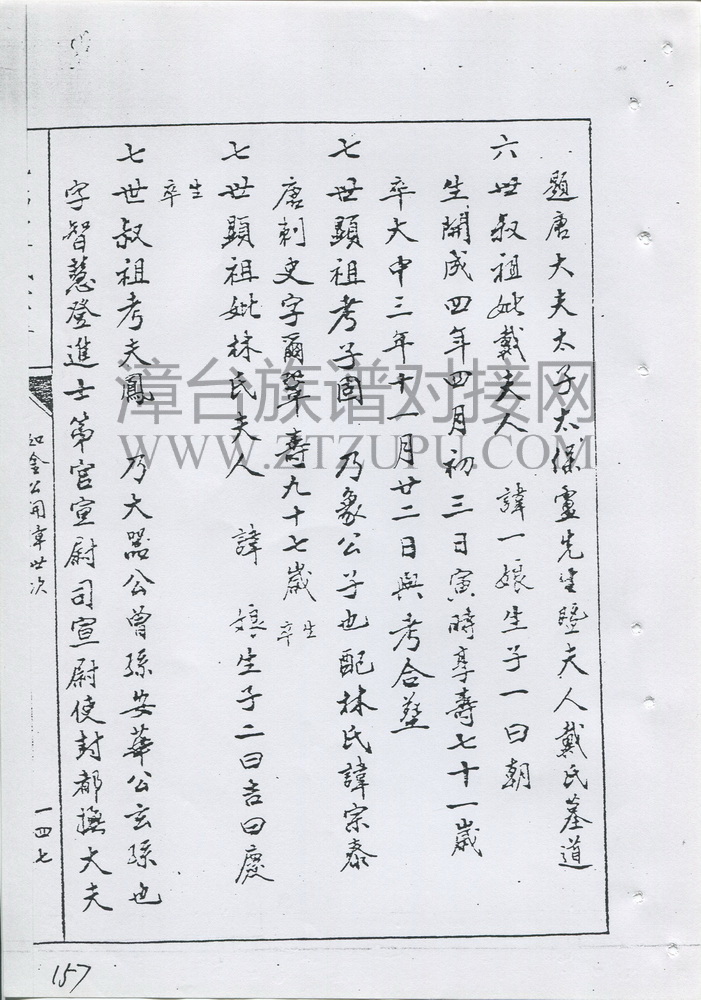 題唐大夫太子太保盧先生暨夫人戴氏墓道
六世叔祖妣戴夫人 諱一娘生子一曰朝
生開成四年四月初三日寅時享壽七十一歲
卒大中三年十一月廿二日與考合塟
七世顯祖考子固 乃象公子也配林氏諱宗泰
唐刺史字爾鞏壽九十七歲 生卒
七世顯祖妣林氏夫人 諱 娘生子二曰吉曰慶
生卒
七世叔祖考夫鳳 乃大器公曾孫安華公玄孫也
字智慧登進士第官宣尉司宣尉使封都撫大夫
如金公用章世次
一四七
157
漳台族谱对接网
WWW.ZTZUPU.COM